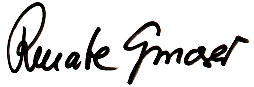 Renate Gmoser